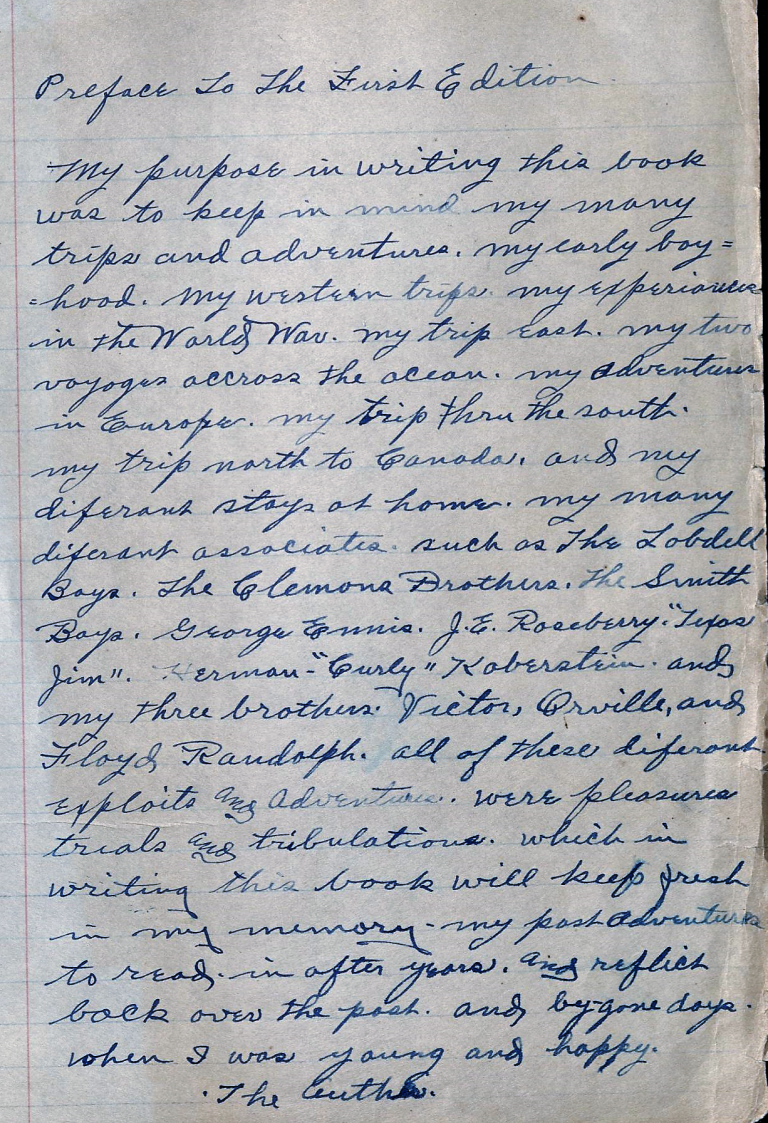 Preface To The First Edition.
My purpose in writing this book
was to keep in mind my many
trips and adventures. my early boy=
=hood. My western trips. my experiances
in the World War. my trip east. my two
voyages accross the ocean. my adventures
in Europe. my trip thru the south.
my trip north to Canada. and my
diferant stays at home. my many
diferant associates. such as The Lobdell
Boys. The Clemons Brothers. The Smith
Boys. George Ennis. J.E. Roseberry-"Texas
Jim". Herman-"Curly" Koberstein. and
my three brothers. Victor, Orville, and
Floyd Randolph. all of these diferant
exploits and Adventures. were pleasures
trials and tribulations. which in
writing this book will keep fresh
in my memory-my past adventures
to read. in after years. and reflict
back over the past. and by-gone days.
when I was young and happy.
.The Author.